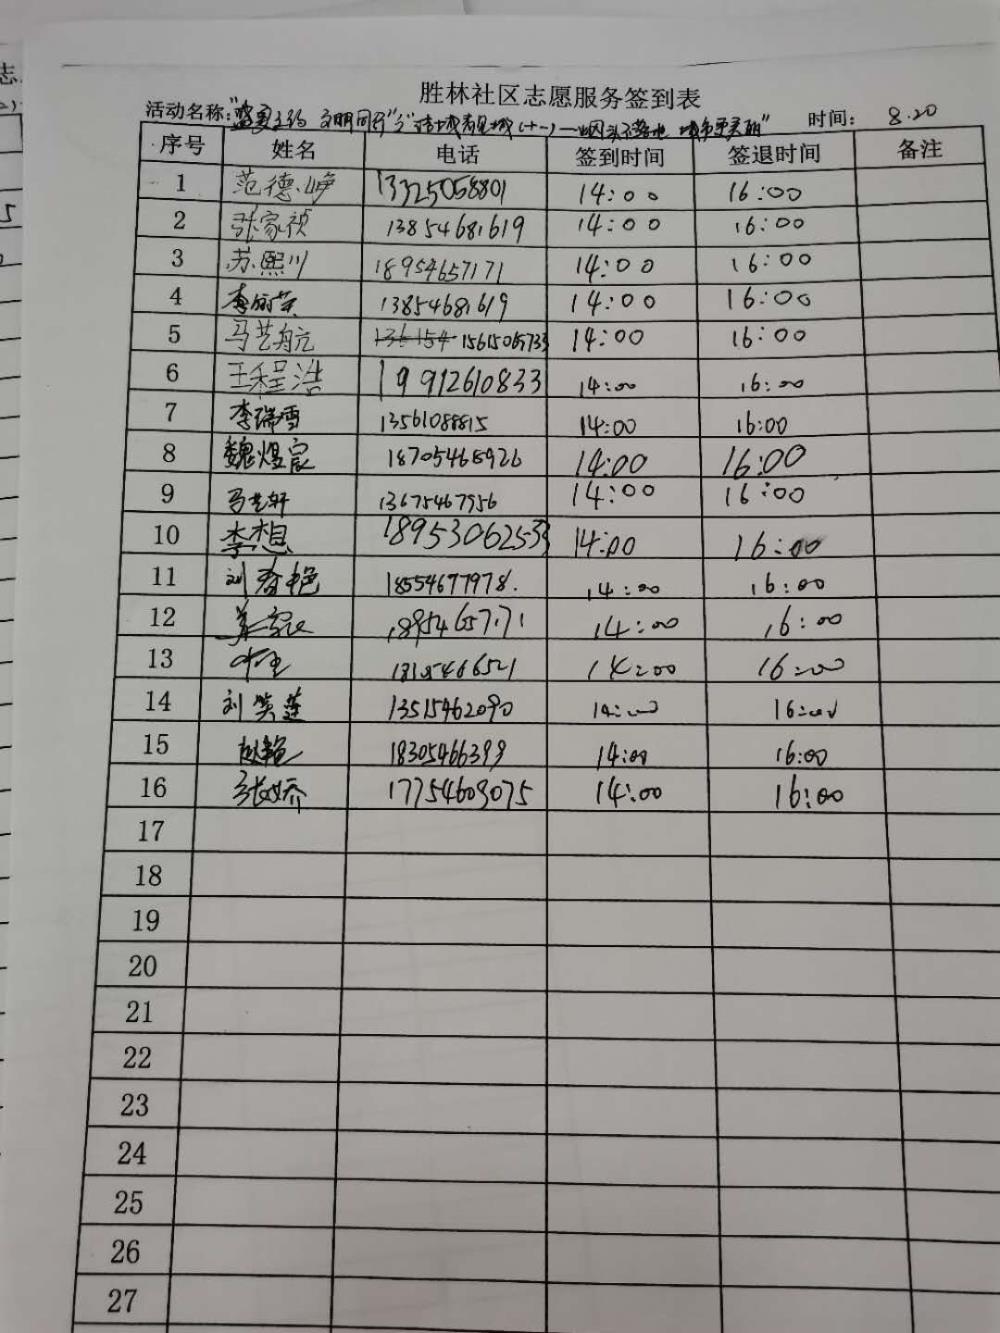 胜林社区志愿服务签到表
活动名称: 时间: 8.20
序号 姓名 电话 签到时间 签退时间 备注
1 范德峥 13325058801 14:00 16:00
2 张家祯 13854681619 14:00 16:00
3 苏熙川 18954657171 14:00 16:00
4 13854681619 14:00 16:00
5 马艺航 136154 15615065733 14:00 16:00
6 王程浩 19912610833 14:00 16:00
7 李瑞雪 13561088815 14:00 16:00
8 魏煜宸 18705468926 14:00 16:00
9 马艺轩 13675467956 14:00 16:00
10 李想 18953062533 14:00 16:00
11 刘春艳 18554677978. 14:00 16:00
12 18954657171 14:00 16:00
13 14:00 16:00
14 刘笑莲 13515462090 14:00 16:00
15 赵艳 18305466399 14:00 16:00
16 张娇 17754609075 14:00 16:00
17
18
19
20
21
22
23
24
25
26
27